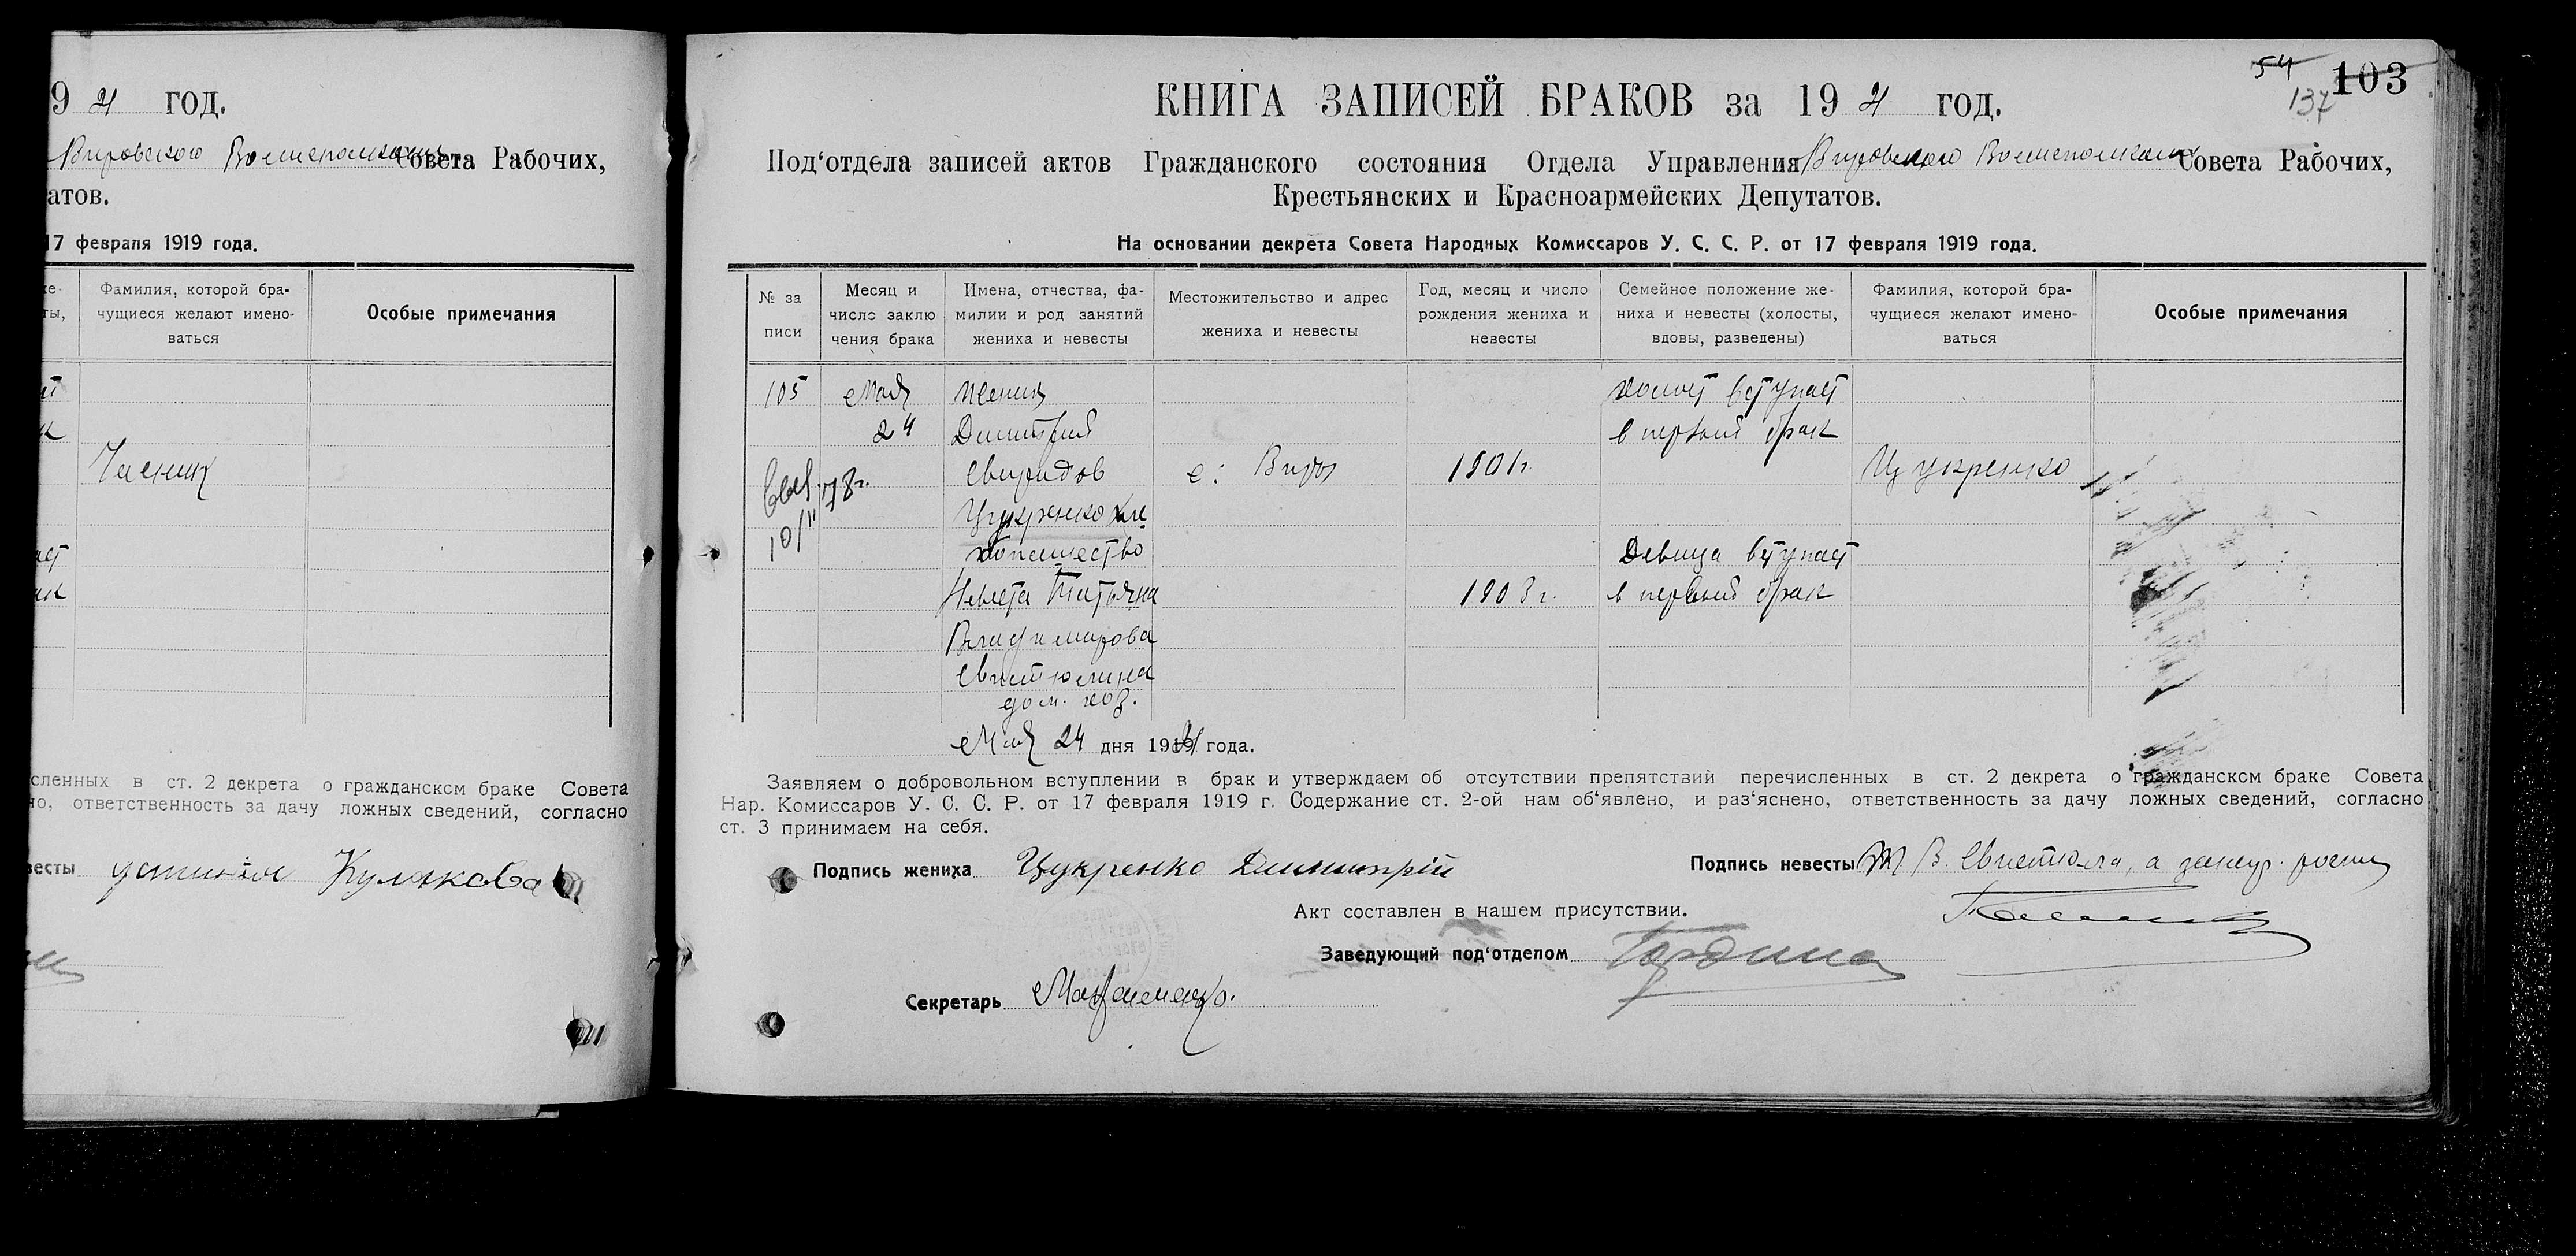 9 21 год.
Вировского Волисполкома Совета Рабочих,
атов.
17 февраля 1919 года.
Фамилия, которой бра-
чущиеся желают имено-
ваться
Особые примечания
Чиеник
сленных в ст. 2 декрета о гражданском браке Совета
но, ответственность за дачу ложных сведений, согласно
весты Устиния Кулакова
54
103
137
КНИГА ЗАПИСЕЙ БРАКОВ за 19 21 год.
Под‘отдела записей актов Гражданского состояния Отдела Управления Вировского Волисполкома Совета Рабочих,
Крестьянских и Красноармейских Депутатов.
На основании декрета Совета Народных Комиссаров У. С. С. Р. от 17 февраля 1919 года.
№ за
писи
Месяц и
число заклю
чения брака
Имена, отчества, фа-
милии и род занятий
жениха и невесты
Местожительство и адрес
жениха и невесты
Год, месяц и число
рождения жениха и
невесты
Семейное положение же-
ниха и невесты (холосты,
вдовы, разведены)
Фамилия, которой бра-
чущиеся желают имено-
ваться
Особые примечания
105 Май Жених холост вступает
24 Димитрий в первый брак
Свиридов с: Виры 1901г. Цукренко
78г.
Цукренко хле
10/II
бопашество Девица вступает
Невеста Татьяна 1903 г. в первый брак
Владимирова
Свистюлина
дом. хоз.
Май 24 дня 1921 года.
Заявляем о добровольном вступлении в брак и утверждаем об отсутствии препятствий перечисленных в ст. 2 декрета о гражданском браке Совета
Нар. Комиссаров У. С. С. Р. от 17 февраля 1919 г. Содержание ст. 2-ой нам об‘явлено, и раз‘яснено, ответственность за дачу ложных сведений, согласно
ст. 3 принимаем на себя.
Подпись жениха Цукренко Димитрій
Подпись невесты Т В. Свистюла, а за неур. росп
Акт составлен в нашем присутствии.
Заведующий под‘отделом
Секретарь